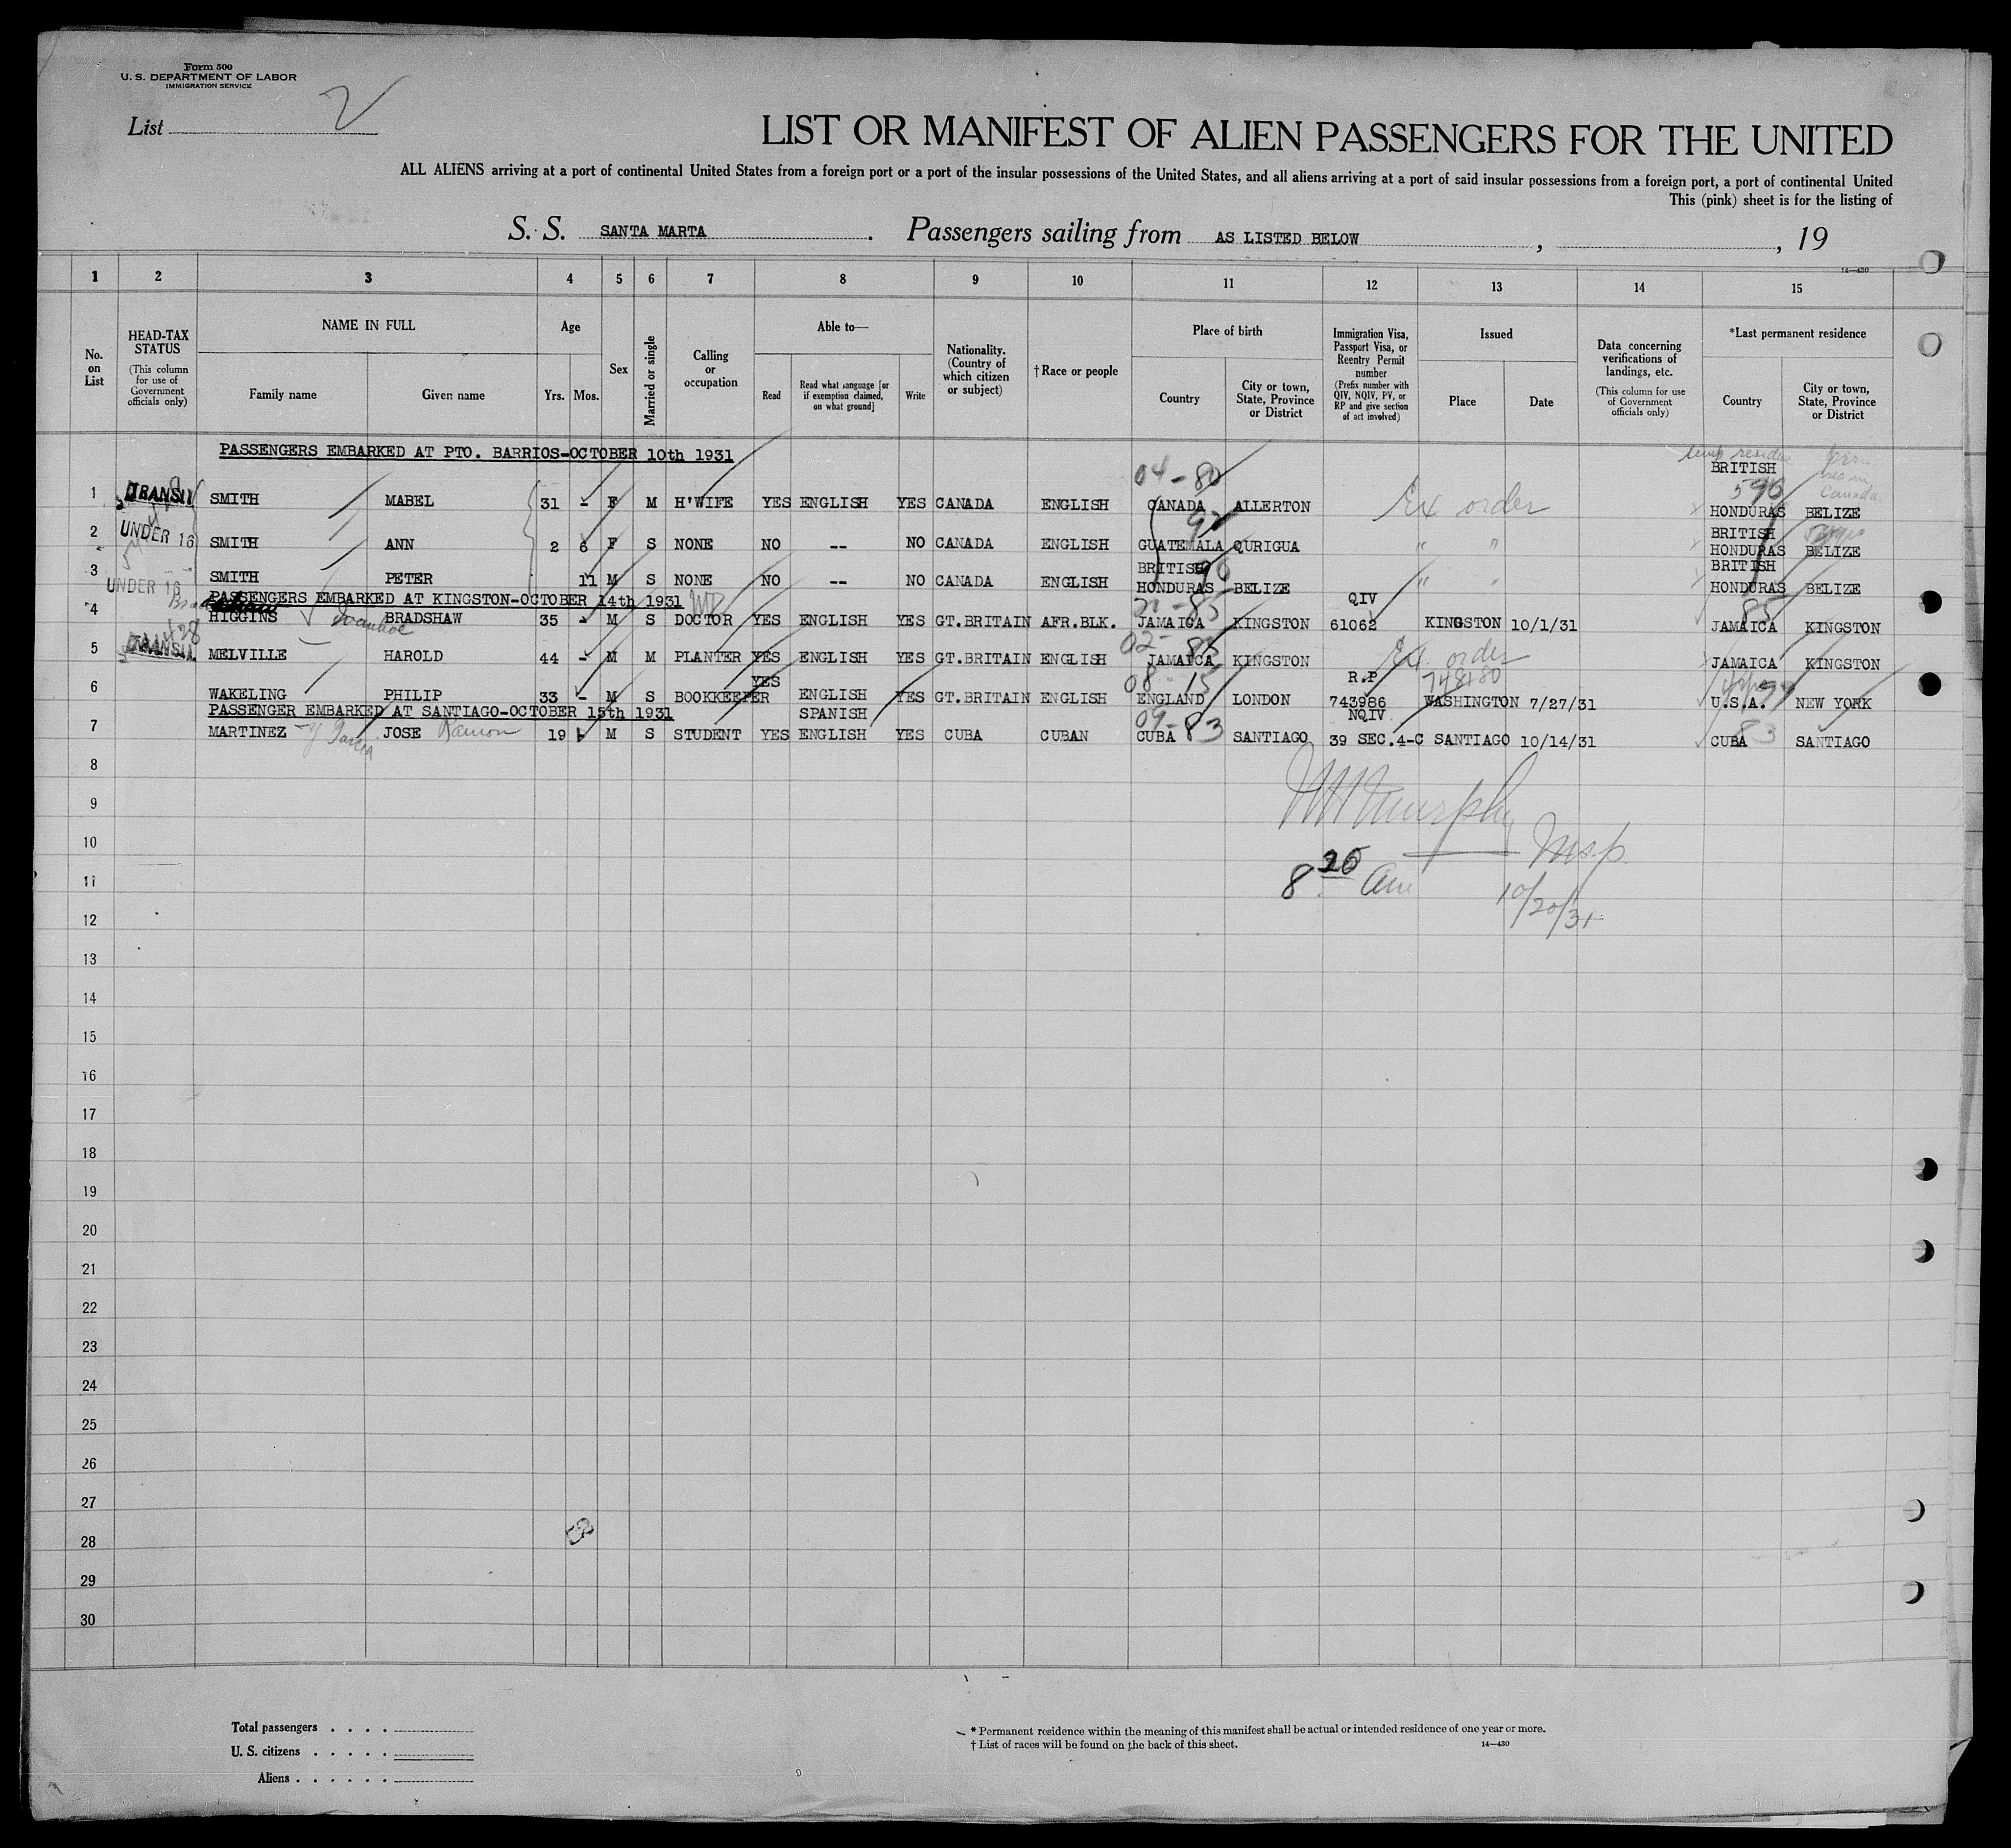 Form 500
U. S. DEPARTMENT OF LABOR
IMMIGRATION SERVICE
List 2
LIST OR MANIFEST OF ALIEN PASSENGERS FOR THE UNITED
ALL ALIENS arriving at a port of continental United States from a foreign port or a port of the insular possessions of the United States, and all aliens arriving at a port of said insular possessions from a foreign port, a port of continental United
This (pink) sheet is for the listing of
S. S. SANTA MARTA . Passengers sailing from AS LISTED BELOW , , 19
14—430
1 2 3 4 5 6 7 8 9 10 11 12 13 14 15
No. on List
HEAD-TAX STATUS (This column for use of Government officials only)
NAME IN FULL Family name Given name
Age Yrs. Mos.
Sex
Married or single
Calling or occupation
Able to— Read Read what language [or if exemption claimed, on what ground] Write
Nationality. (Country of which citizen or subject)
†Race or people
Place of birth Country City or town, State, Province or District
Immigration Visa, Passport Visa, or Reentry Permit number (Prefix number with QIV, NQIV, PV, or RP and give section of act involved)
Issued Place Date
Data concerning verifications of landings, etc. (This column for use of Government officials only)
*Last permanent residence Country City or town, State, Province or District
PASSENGERS EMBARKED AT PTO. BARRIOS-OCTOBER 10th 1931
04-80
1 TRANSIT SMITH MABEL 31 - F M H'WIFE YES ENGLISH YES CANADA ENGLISH CANADA ALLERTON Ex order BRITISH HONDURAS BELIZE
2 UNDER 16 SMITH ANN 2 6 F S NONE NO -- NO CANADA ENGLISH 92 GUATEMALA QURIGUA " " BRITISH HONDURAS BELIZE
3 UNDER 16 SMITH PETER 11 M S NONE NO -- NO CANADA ENGLISH BRITISH HONDURAS BELIZE " " BRITISH HONDURAS BELIZE
PASSENGERS EMBARKED AT KINGSTON-OCTOBER 14th 1931
4 HIGGINS Ivanhoe BRADSHAW 35 - M S DOCTOR YES ENGLISH YES GT.BRITAIN AFR.BLK. JAMAICA KINGSTON QIV 61062 KINGSTON 10/1/31 85 JAMAICA KINGSTON
5 TRANSIT MELVILLE HAROLD 44 - M M PLANTER YES ENGLISH YES GT.BRITAIN ENGLISH 02-85 JAMAICA KINGSTON Ex order JAMAICA KINGSTON
6 WAKELING PHILIP 33 - M S BOOKKEEPER YES ENGLISH YES GT.BRITAIN ENGLISH 08-15 ENGLAND LONDON R.P 743986 748180 WASHINGTON 7/27/31 U.S.A. NEW YORK
PASSENGER EMBARKED AT SANTIAGO-OCTOBER 15th 1931
7 MARTINEZ -y Garcia JOSE Ramon 19 M S STUDENT YES SPANISH ENGLISH YES CUBA CUBAN 09-83 CUBA SANTIAGO NQIV 39 SEC.4-C SANTIAGO 10/14/31 83 CUBA SANTIAGO
8
Murphy
9
10 Insp.
11 8 20 am 10/20/31
12
13
14
15
16
17
18
19
20
21
22
23
24
25
26
27
28
29
30
Total passengers . . . .
U. S. citizens . . . . .
Aliens . . . . . .
* Permanent residence within the meaning of this manifest shall be actual or intended residence of one year or more.
† List of races will be found on the back of this sheet. 14—430